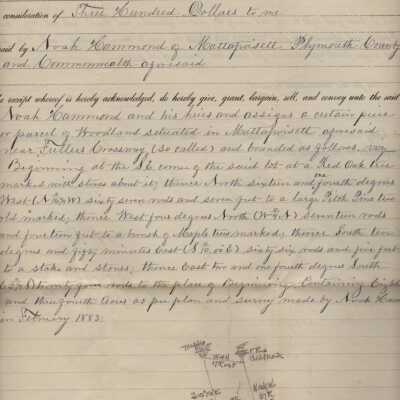 consideration of Three Hundred Dollars to me
aid by Noah Hammond of Mattapoisett Plymouth County
and Commonwealth aforesaid
he receipt whereof is hereby acknowledged, do hereby give, grant, bargain, sell, and convey unto the said
Noah Hammond and his heirs and assigns a certain piece
or parcel of Woodland situated in Mattapoisett aforesaid
near Tullers Crossway (so called) and bounded as follows. viz
Beginning at the S.E. corner of the said lot at a Red Oak tree
marked with stones about it; thence North sixteen and one fourth degrees
West sixty seven rods and seven feet to a large Pitch Pine tree
old marked, thence West four degrees North Seventeen rods
and fourteen feet to a bunch of Maple trees marked; thence South ten
degrees and fifty minutes East sixty six rods and five feet
to a stake and stones; thence East two and one fourth degrees South
twenty rods to the place of Beginning. Containing Eight
and three fourth Acres as per plan and survey made by Noah Ham
in February 1882.